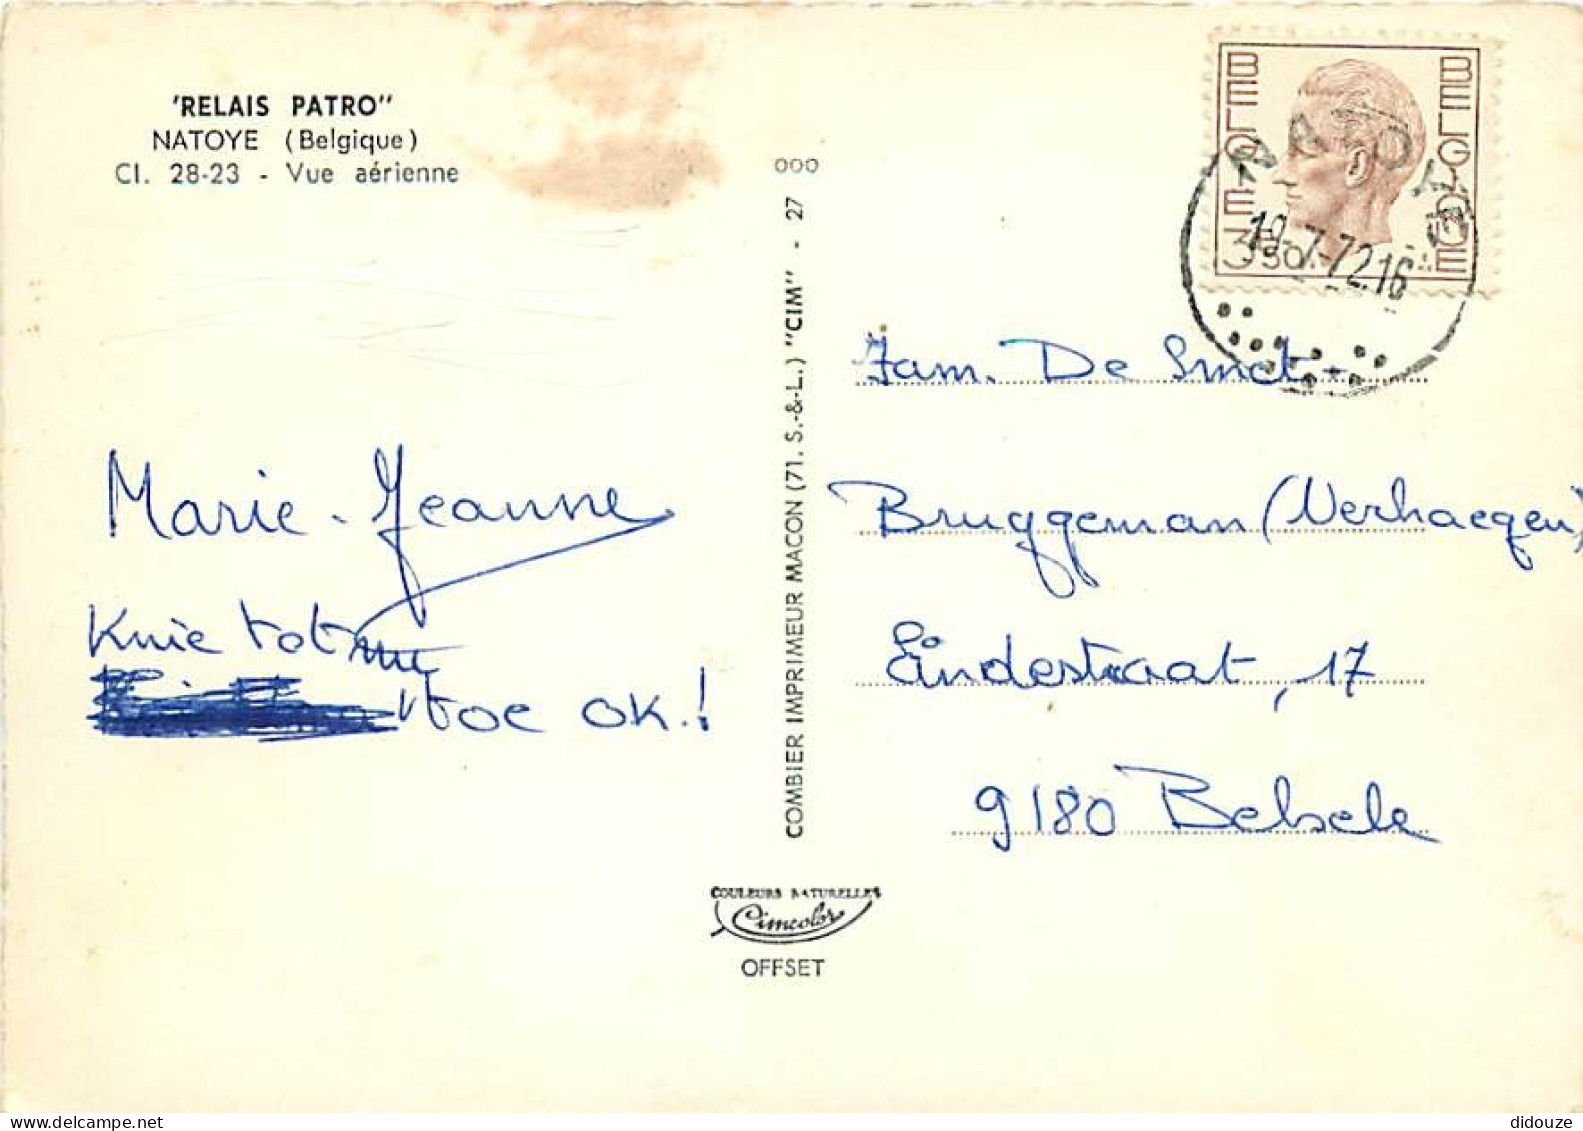 'RELAIS PATRO"
NATOYE (Belgique)
Cl. 28-23 - Vue aérienne
Marie-Jeanne
Knie tot nu
toe OK.!
000
COMBIER IMPRIMEUR MACON (71. S.-&-L.) "CIM" - 27
COULEURS NATURELLES
Cimcolor
OFFSET
BELGIË
BELGIQUE
3F50
7-72.16
Fam. De Smet-
Bruggeman (Verhaegen)
Eindestraat, 17
9180 Belsele
didouze